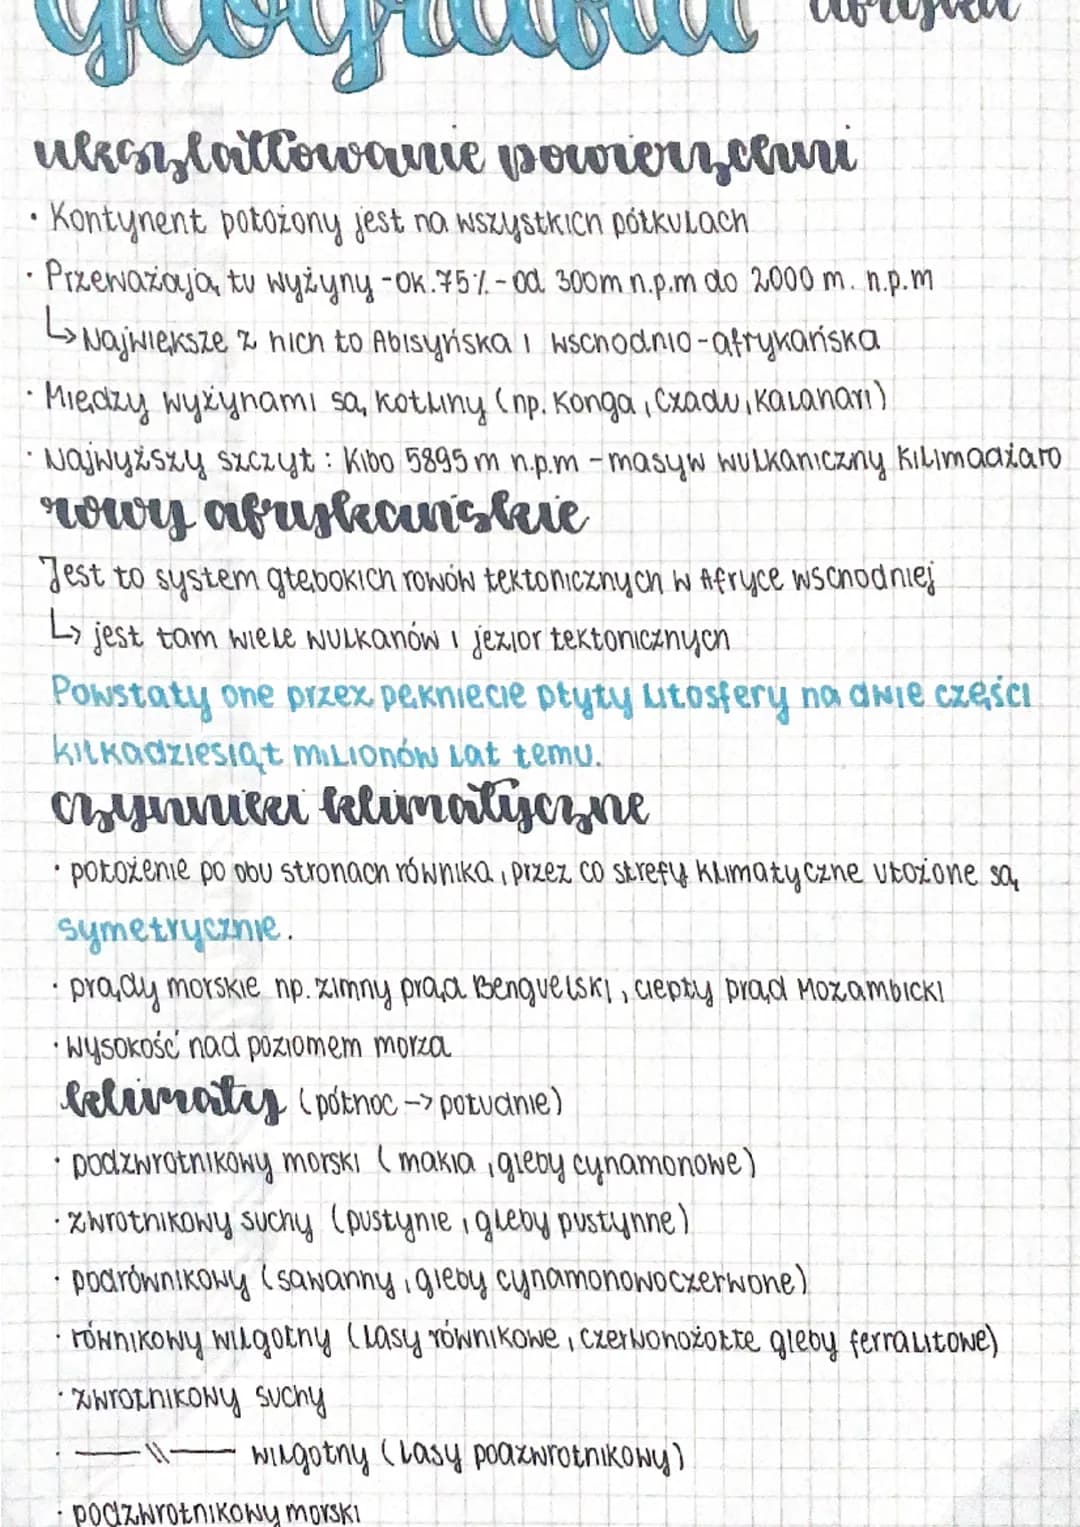 geografia afryka
ukształtowanie powierzchni
· Kontynent położony jest na wszystkich półkulach
· Przeważają tu wyżyny - ok. 75% - od 300m n.p.m do 2000 m. n.p.m
↳ Największe z nich to Abisyńska i wschodnio-afrykańska
· Między wyżynami są kotliny (np. Konga, Czadu, Kalahari)
· Najwyższy szczyt : Kibo 5895 m n.p.m - masyw wulkaniczny Kilimadżaro
rowy afrykańskie
Jest to system głębokich rowów tektonicznych w Afryce wschodniej
↳ jest tam wiele wulkanów i jezior tektonicznych
Powstały one przez pęknięcie płyty litosfery na dwie części
kilkadziesiąt milionów lat temu.
czynniki klimatyczne
· położenie po obu stronach równika, przez co strefy klimatyczne ułożone są
symetrycznie.
· prądy morskie np. zimny prąd Benguelski, ciepły prąd Mozambicki
· wysokość nad poziomem morza
klimaty (północ -> południe)
· podzwrotnikowy morski (makia, gleby cynamonowe)
· zwrotnikowy suchy (pustynie, gleby pustynne)
· podrównikowy (sawanny, gleby cynamonowoczerwone)
· równikowy wilgotny (lasy równikowe, czerwonożółte gleby ferralitowe)
· zwrotnikowy suchy
· —\\— wilgotny (lasy podzwrotnikowy)
· podzwrotnikowy morski